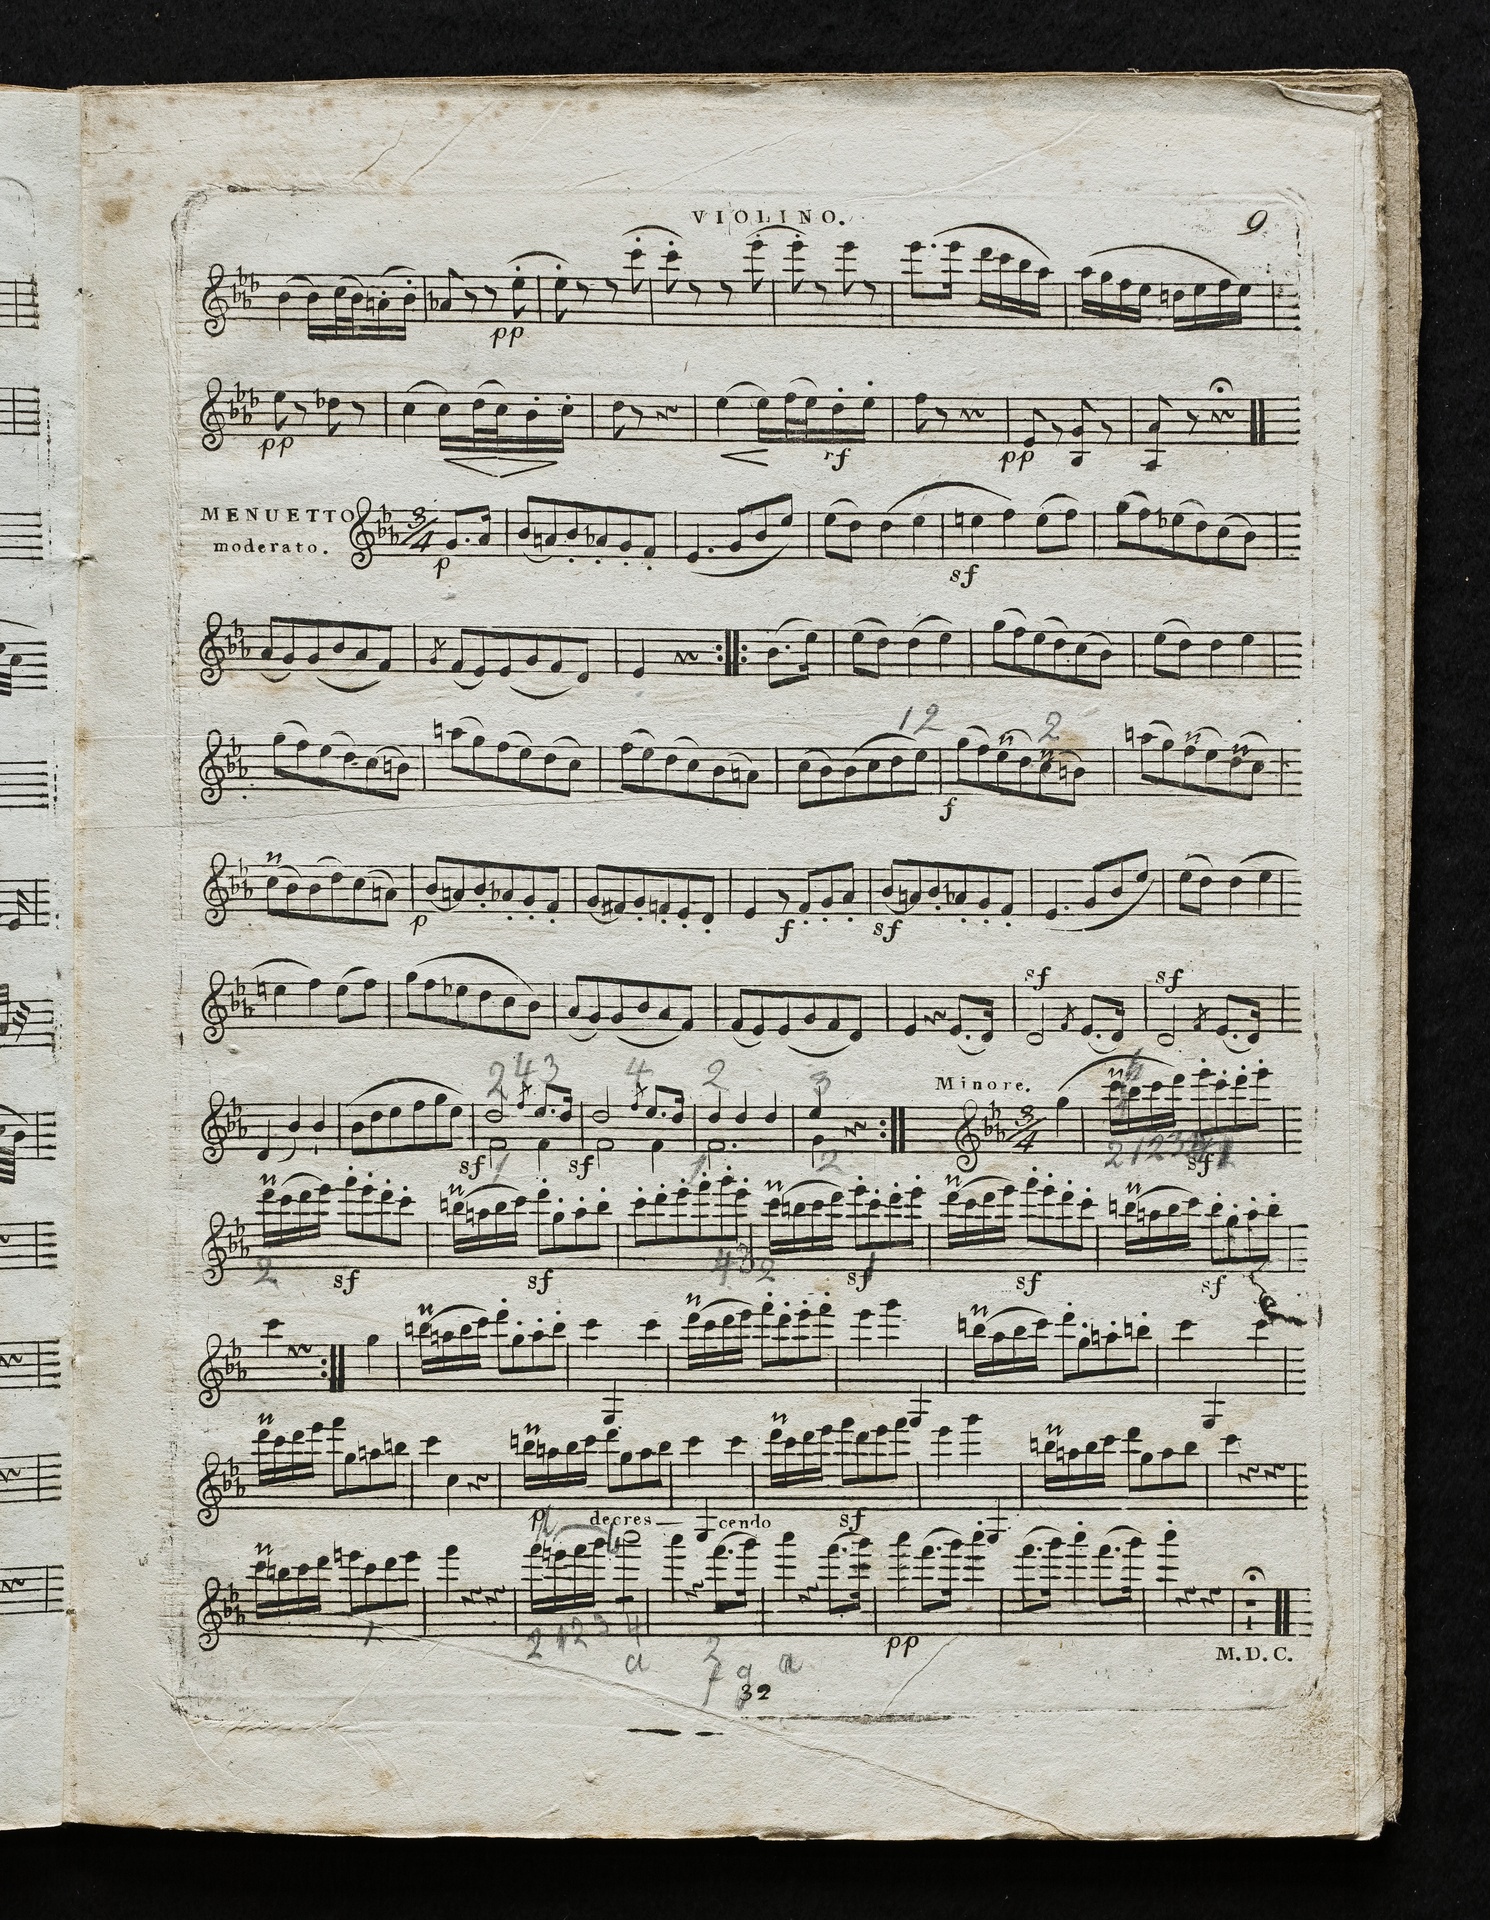 VIOLINO.
9
pp
pp
rf
pp
MENUETTO
moderato.
3/4
p
sf
1 2
2
f
p
f
sf
sf
sf
2 4 3
4
2
3
Minore.
3/4
sf
sf
2
sf
2
sf
sf
4 3 2
sf
sf
sf
p
decres—cendo
sf
2
1 2 3 4
a
2
a
pp
M.D.C.
32